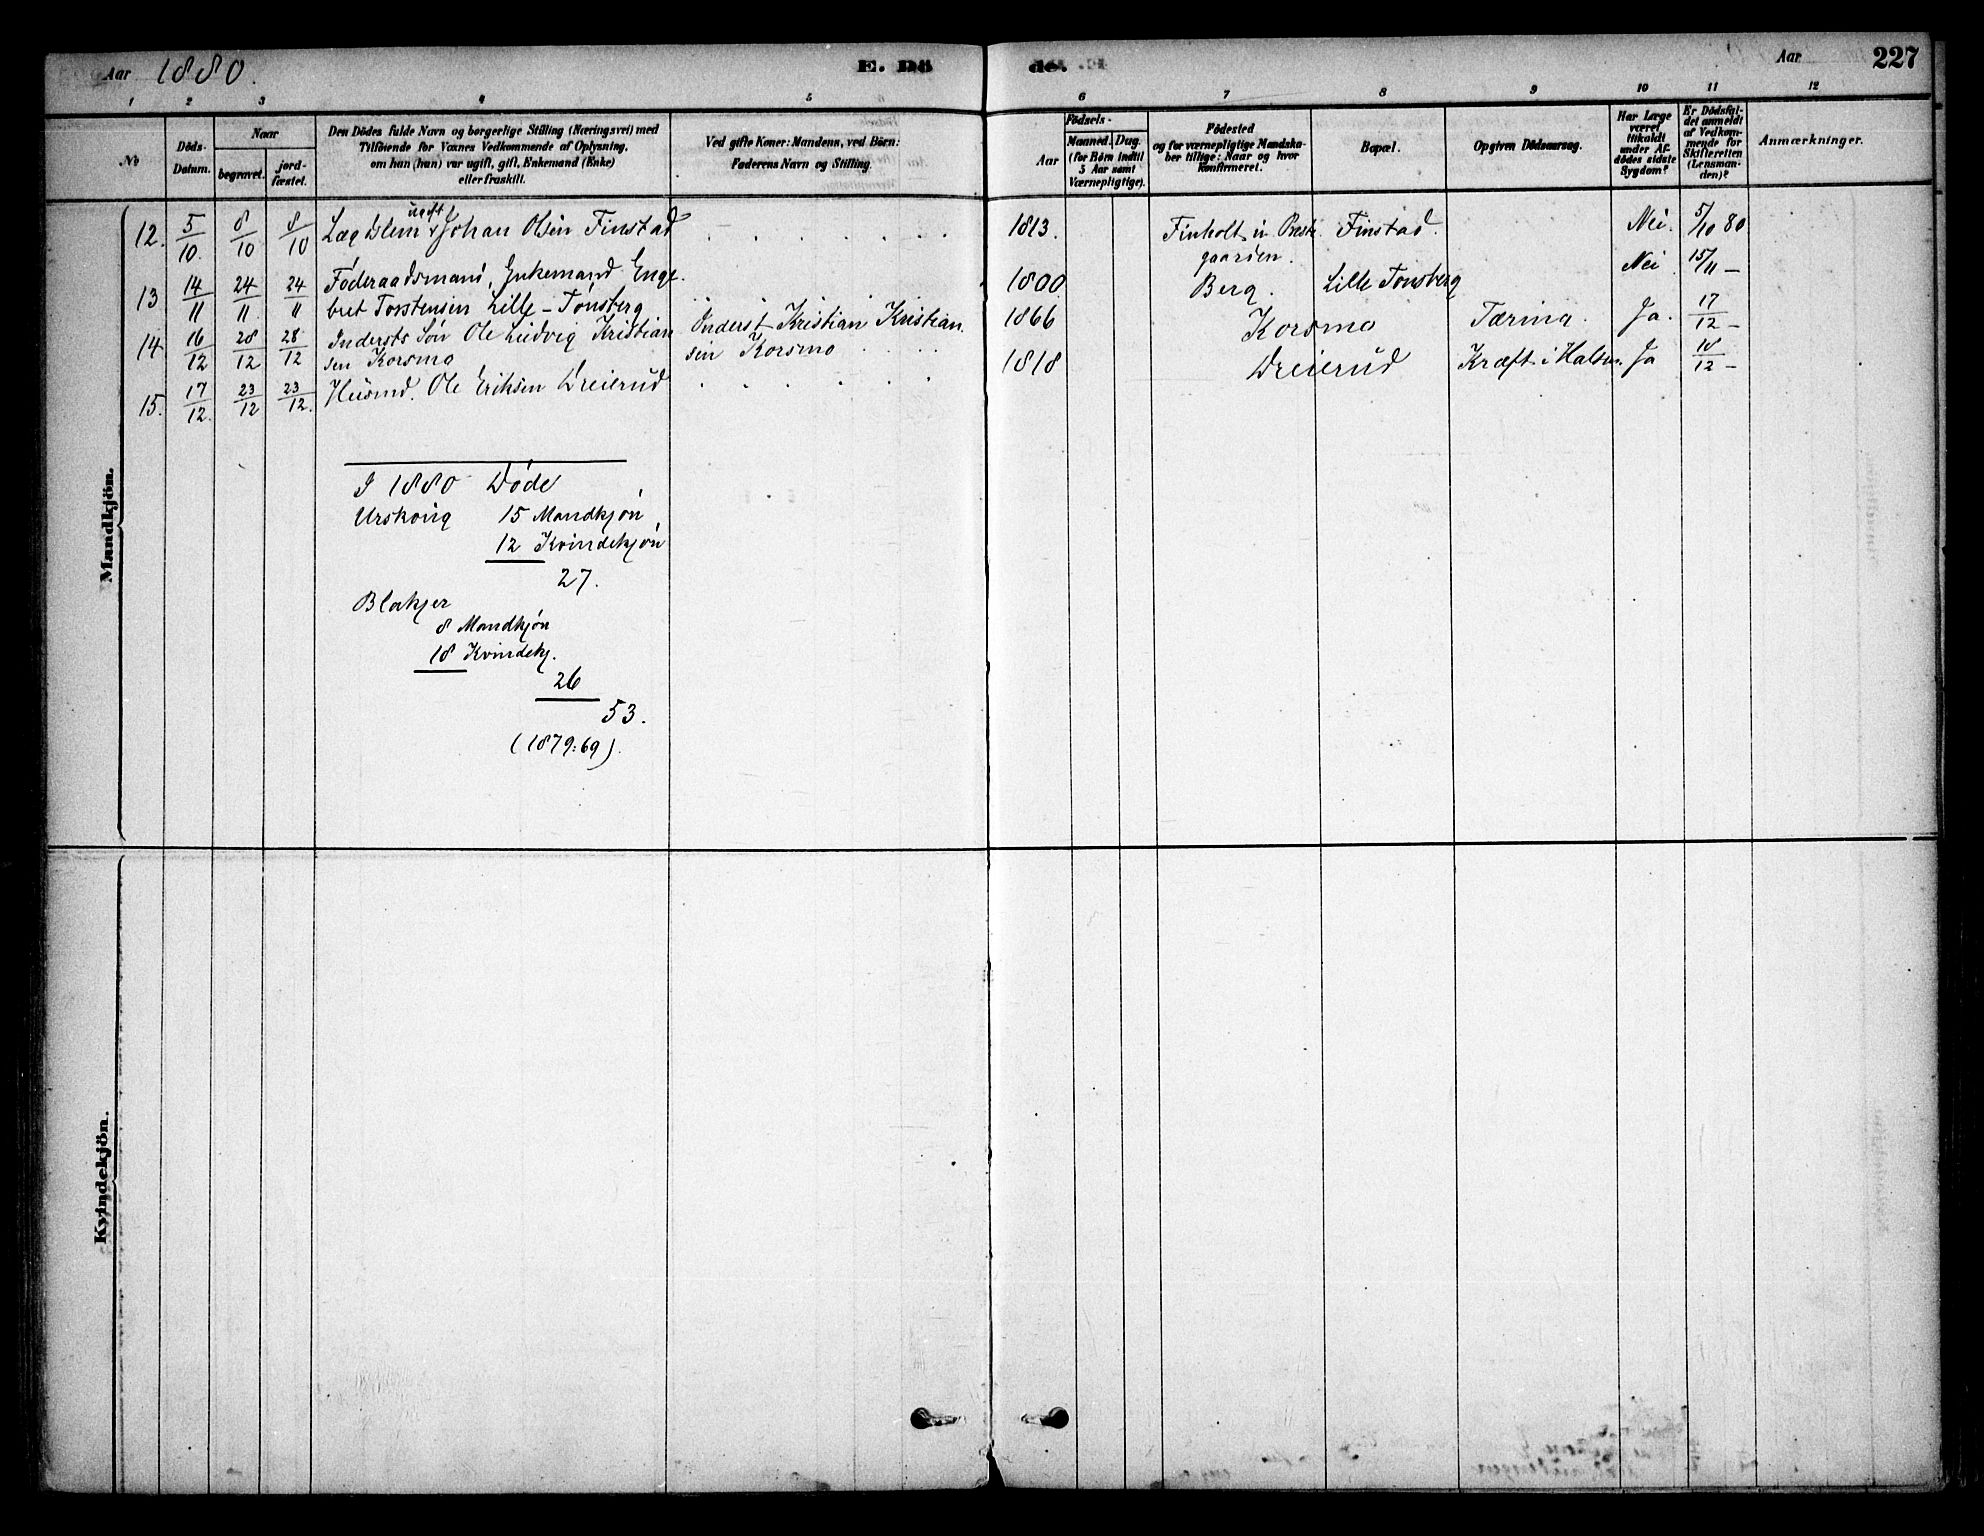 Aar 1880. E. Dö
de. Aar 227
1 2 3 4 5 6 7 8 9 10 11 12
No
Döds-
Datum.
Naar
begravet.
jord-
fæstet.
Den Dödes fulde Navn og borgerlige Stilling (Næringsvei) med
Tilföiende for Voxnes Vedkommende af Oplysning,
om han (hun) var ugift, gift, Enkemand (Enke)
eller fraskilt.
Ved gifte Koner: Mandens, ved Börn:
Faderens Navn og Stilling.
Födsels-
Aar
Maaned. Dag.
(for Börn indtil
5 Aar samt
Værnepligtige).
Födested
og for værnepligtige Mandska-
ber tillige: Naar og hvor
konfirmeret.
Bopæl.
Opgiven Dödsaarsag.
Har Læge
været
tilkaldt
under Af-
dödes sidste
Sygdom?
Er Dödsfal-
det anmeldt
af Vedkom-
mende for
Skifteretten
(Lensman-
den)?
Anmærkninger.
Mandkjön.
12. 5/10. 8/10 8/10 Lægdslem ugift Johan Olsen Finstad 1813. Finholt u. Prest- Finstad. Nei. 5/10 80
gaarden.
13 14/11 24/11. 24/11 Föderaadsmand, Enkemand Enge- 1800. Berg. Lille Tonsberg Nei. 15/11 –
bret Torstensen Lille-Tönsberg
14 16/12 28/12 28/12 Indersts Sön Ole Ludvig Kristian Inderst Kristian Kristian- 1866 Korsmo Tæring. Ja. 17/12 –
sen Korsmo sen Korsmo
15. 17/12. 23/12 23/12. Husmd. Ole Eriksen Dreierud 1818 Dreierud Kræft i Halsen. Ja 18/12 –
I 1880 Döde
Urskoug 15 Mandkjön
12 Kvindekjön
27.
Blakjer
8 Mandkjön
18 Kvindekj.
26
53.
(1879:69).
Kvindekjön.